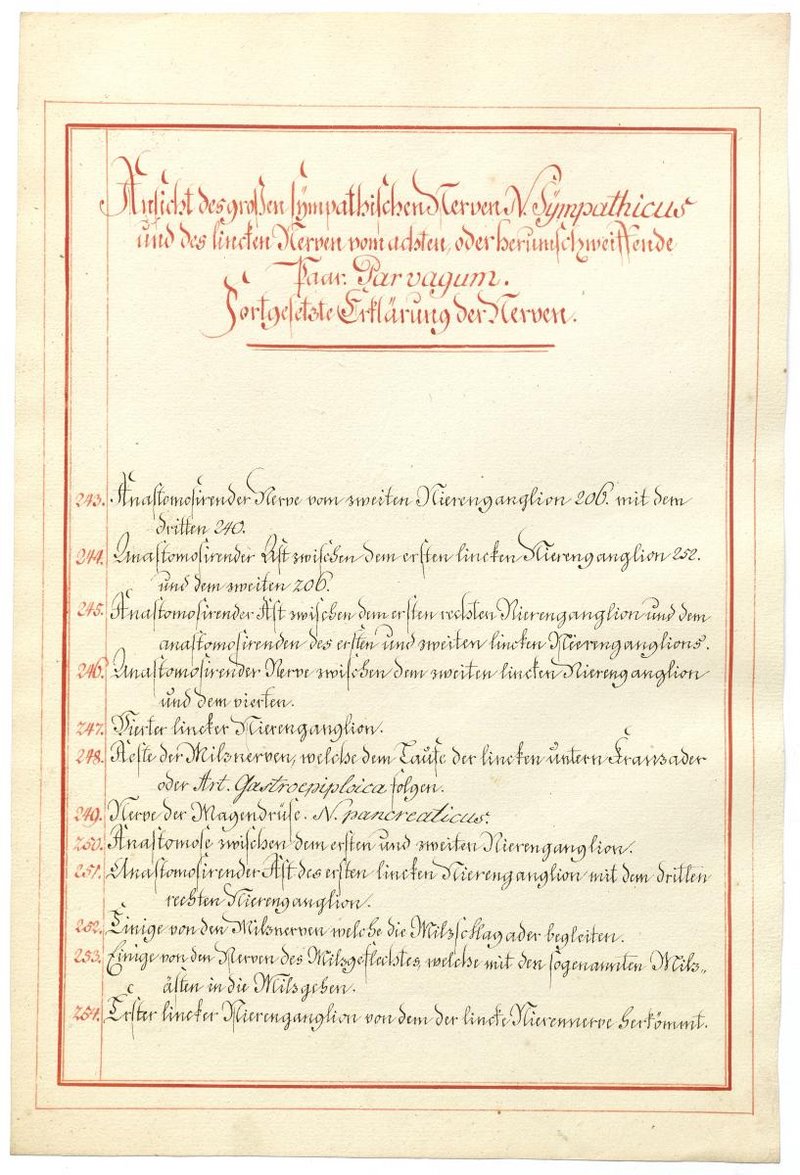 Ansicht des großen sÿmpathischen Nerven N. Sÿmpathicus
und des lincken Nerven vom achten, oder herumschweiffende
Paar. Par vagum.
Fortgesetzte Erklärung der Nerven.
243. Anastomosirender Nerve vom zweiten Nierenganglion 206. mit dem
dritten 240.
244. Anastomosirender Ast zwischen dem ersten lincken Nierenganglion 252.
und dem zweiten 206.
245. Anastomosirender Ast zwischen dem ersten rechten Nierenganglion und dem
anastomosirenden des ersten und zweiten lincken Nierenganglions.
246. Anastomosirender Nerve zwischen dem zweiten lincken Nierenganglion
und dem vierten.
247. Vierter lincker Nierenganglion.
248. Aeste der Milznerven, welche dem Laufe der lincken untern Kranzader
oder Art. Gastroepiploica folgen.
249. Nerve der Magendrüse. N. pancreaticus.
250. Anastomose zwischen dem ersten und zweiten Nierenganglion.
251. Anastomosirender Ast des ersten lincken Nierenganglion mit dem dritten
rechten Nierenganglion.
252. Einige von den Milznerven welche die Milzschlagader begleiten.
253. Einige von den Nerven des Milzgeflechtes, welche mit den sogenannten Milz„
ästen in die Milz gehen.
254. Erster lincker Nierenganglion von dem der lincke Nierennerve herkömmt.